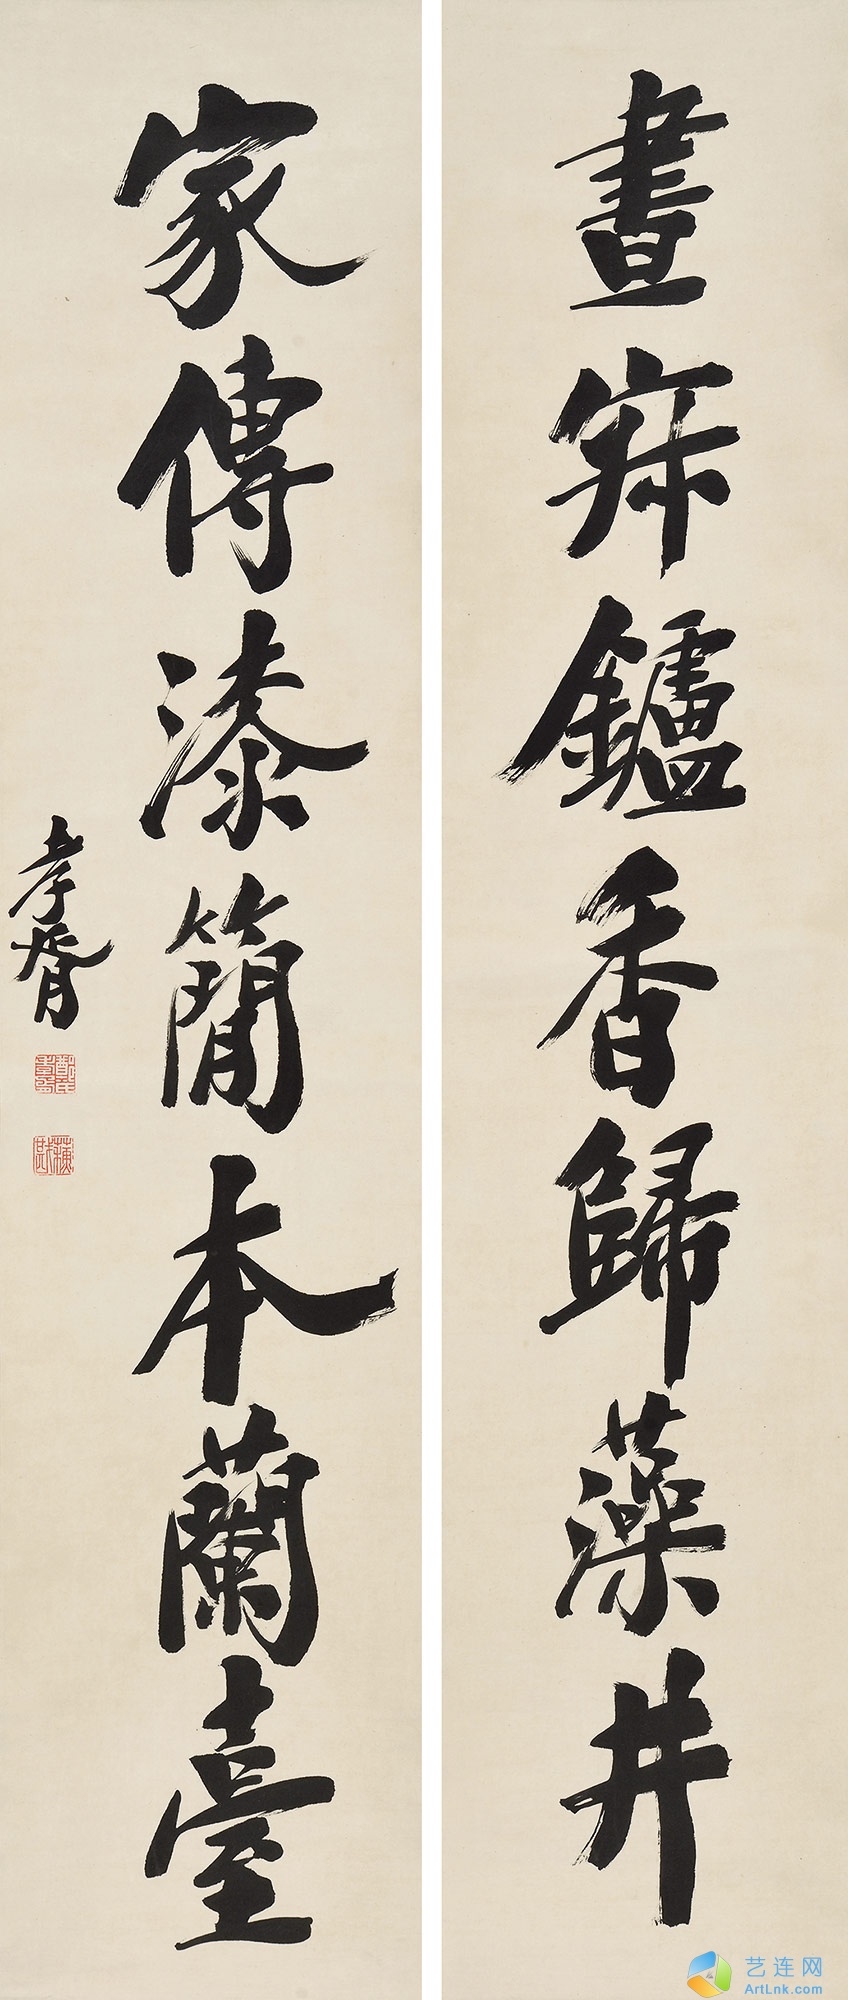 晝寂鑪香歸藻井
家傳漆簡本蘭臺
孝胥
蘇戡
艺连网
ArtLnk.com